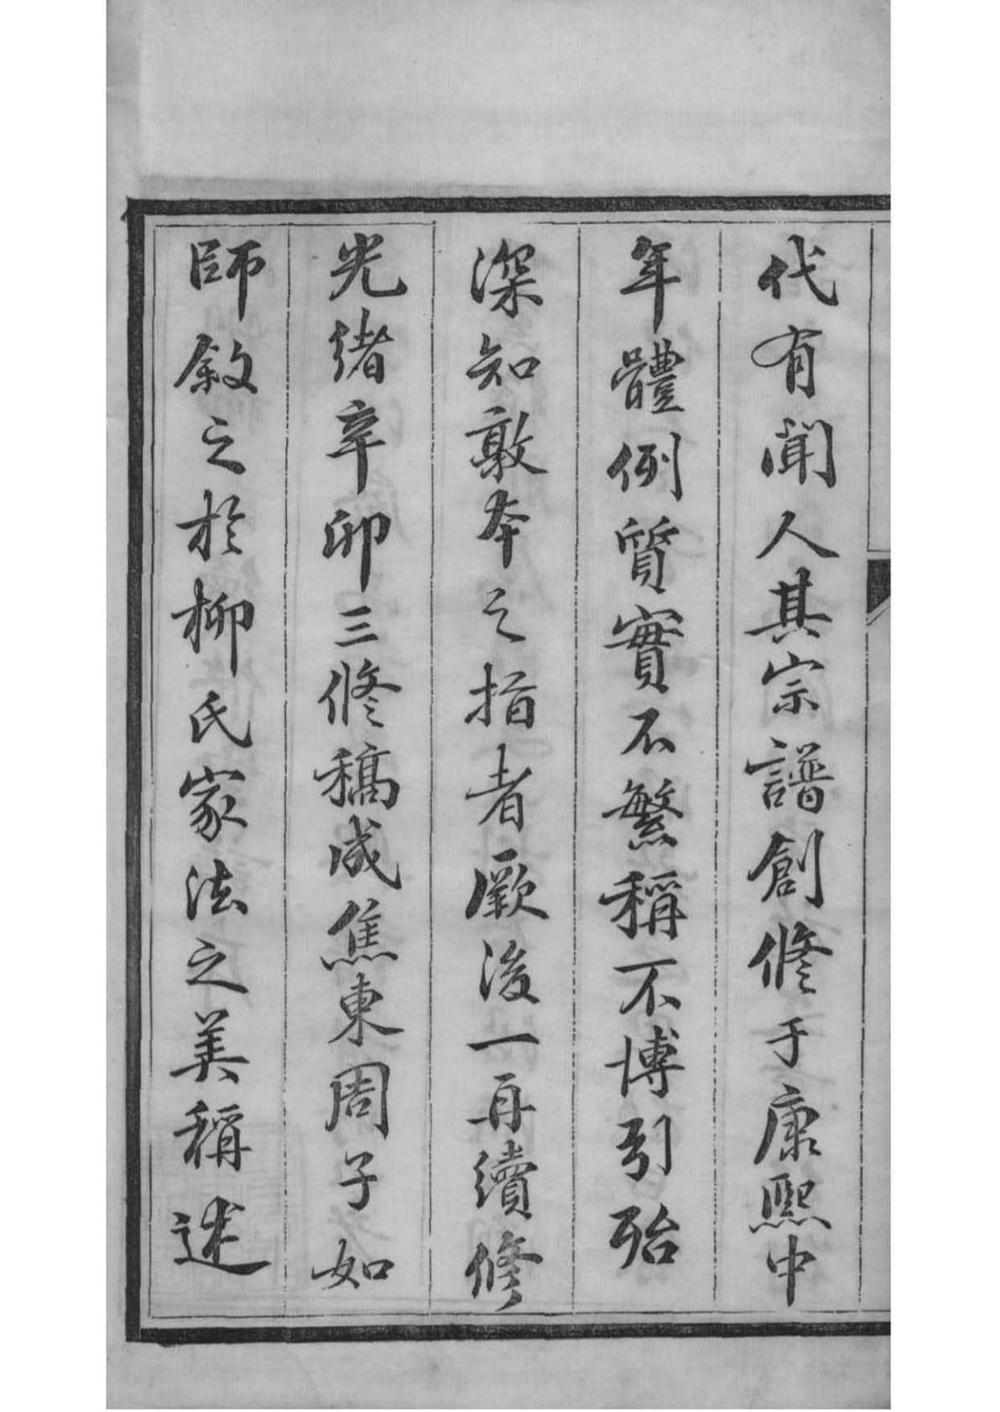 代有聞人其宗譜創修于康熙中
年體例質實不繁稱不博引殆
深知敦本之指者厥後一再續修
光緒辛卯三修稿成焦東周子如
師敘之於柳氏家法之美稱述